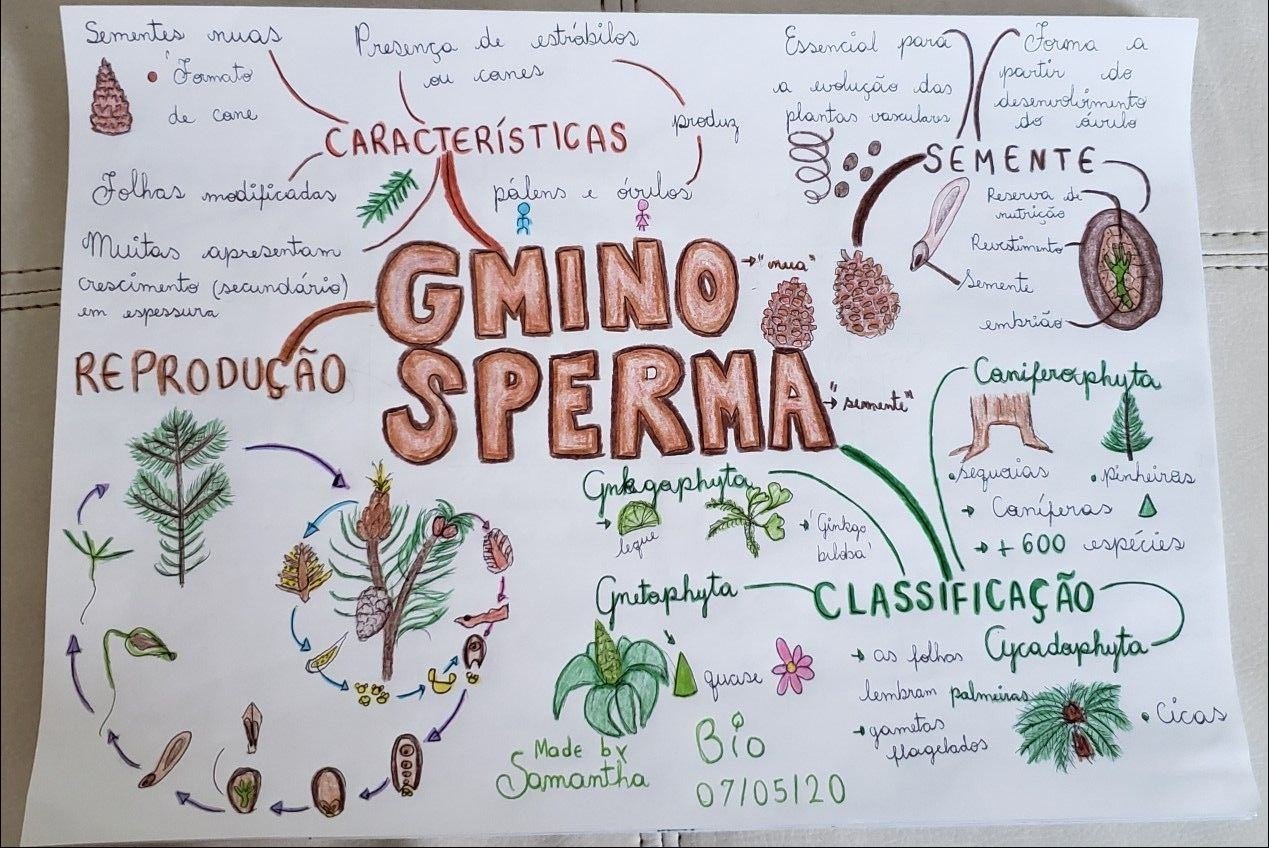 Sementes nuas
• Formato
de cone
Presença de estróbilos
ou cones
produz
pólens e óvulos
CARACTERÍSTICAS
Folhas modificadas
Muitas apresentam
crescimento (secundário)
em espessura
Essencial para
a evolução das
plantas vasculares
Forma a
partir do
desenvolvimento
do óvulo
SEMENTE
Reserva de
nutrição
Revestimento
Semente
embrião
GMINO
→ "nua"
SPERMA
→ "semente"
REPRODUÇÃO
Coniferophyta
• sequoias
• pinheiros
→ Coníferas
→ + 600 espécies
Ginkgophyta
→ leque
→ 'Ginkgo
biloba'
Gnetophyta
quase
CLASSIFICAÇÃO
Cycadophyta
→ as folhas
lembram palmeiras
→ gametas
flagelados
• Cicas
Made by
Samantha
Bio
07/05/20